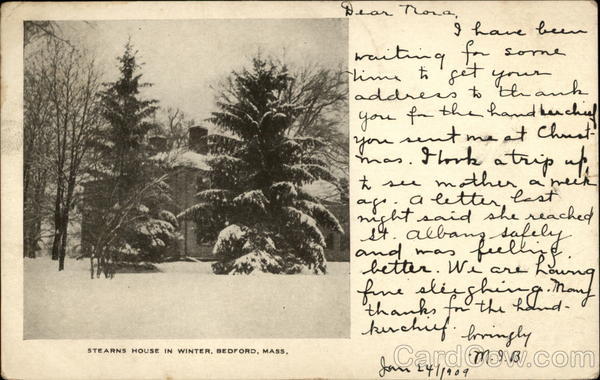 Dear Nora,
I have been
waiting for some
time to get your
address to thank
you for the handkerchief
you sent me at Christ-
mas. I took a trip up
to see mother a week
ago. A letter last
night said she reached
St. Albans safely
and was feeling
better. We are having
fine sleighing. Many
thanks for the hand-
kerchief.
Lovingly
M.I.B.
Jan 24/1909
STEARNS HOUSE IN WINTER, BEDFORD, MASS.
CardCow.com